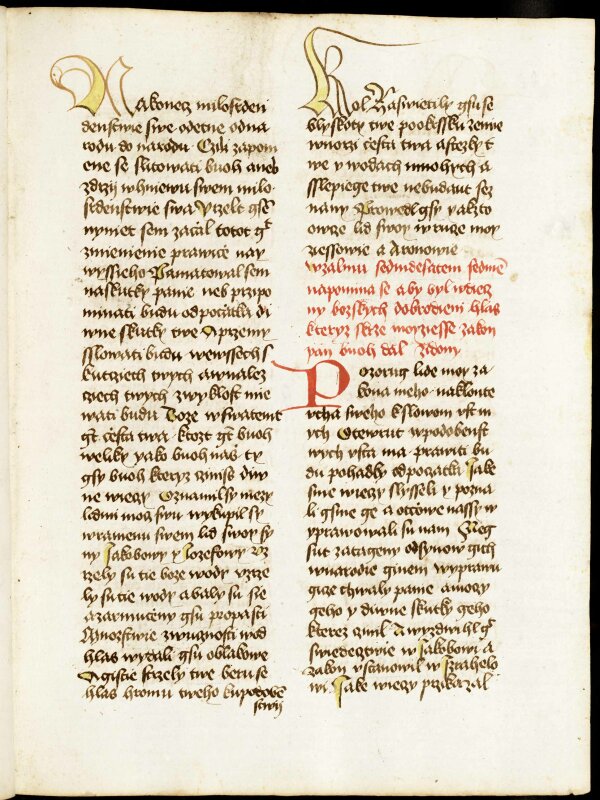 Nakonecz milosrden
denstwie swe odetne odna
rodu do narodu Czili zapom
ene se slitowati buoh aneb
zdrzij whniewu swem milo
srdenstwie swa Y rzekl gse
nynie sem zaczal totot gt
zmienienie prawicze nay
wyssieho Pamatowal sem
na skutky panie neb przipo
minati budu odpoczatka di
wne skutky twe A przemy
sslowati budu wewssech s
kutcziech twych a w nalez
cziech twych zwyklost mie
wati budu Boze w swatemt
gt cesta twa ktozt gt buoh
welky yako buoh nas ty
gsy buoh kteryz czinis diw
ne wieczy Oznamil sy mezy
lidmi mocz swu wykupil sy
w ramenu swem lid swoy sy
ny Jakobowy y Jozefowy Vz
rzely su tie boze wody vzrze
ly su tie wody a baly su se
a zarmuceny gsu propasti
Mnozstwie zwucznosti wod
hlas wydali gsu oblakowe
A gistie strzely twe beru se
hlas hromu tweho kupodobe
stwij
Kol Zaswietily gsu se
blyskoty twe po okrssku zemie
w morzi cesta twa a stezky t
we y wodach mnohych a
sslepiege twe nebudaut sez
nany Prowedl gsy yakzto
owcze lid swoy w rucze moy
ziessowie a Aronowie
W zalmu sedmdesatem sedme
napomina se aby byl wdiecz
ny bozskych dobrodieni hlas
kteryz skrze moyziesse zakon
pan buoh dal Zidom
Pozorug lide moy za
kona meho naklonte
vcha sweho k slowom vst m
ych Otewrut w podobenst
wych vsta ma prawiti bu
du pohadky od poczatka Jake
sme wieczy slysseli y pozna
li gsme ge a otcowe nassy w
yprawowali su nam Neg
sut zatageny od synow gich
w narodie ginem wyprawu
gicze chwaly panie a moczy
geho y diwne skutky geho
kterez czinil A wyzdwihl gt
swiedecztwie w Jakobowi a
zakon vstanowil w Izrahelo
wi Jake wieczy przikazal